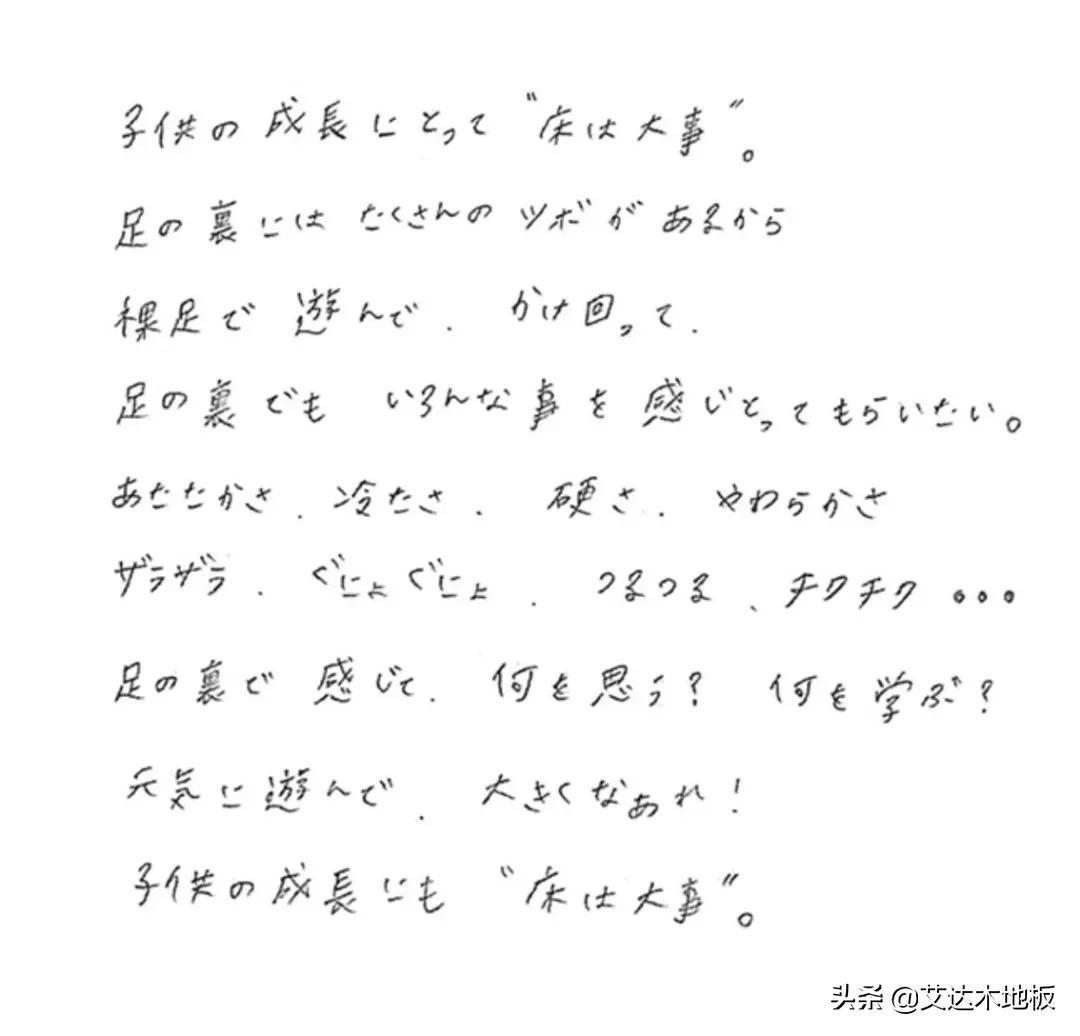 子供の成長にとって"床は大事"。
足の裏にはたくさんのツボがあるから
裸足で遊んで、かけ回って、
足の裏でもいろんな事を感じとってもらいたい。
あたたかさ、冷たさ、硬さ、やわらかさ
ザラザラ、ぐにょぐにょ、つるつる、チクチク・・・
足の裏で感じて、何を思う?何を学ぶ?
元気に遊んで、大きくなあれ!
子供の成長にも"床は大事"。
头条 @艾达木地板